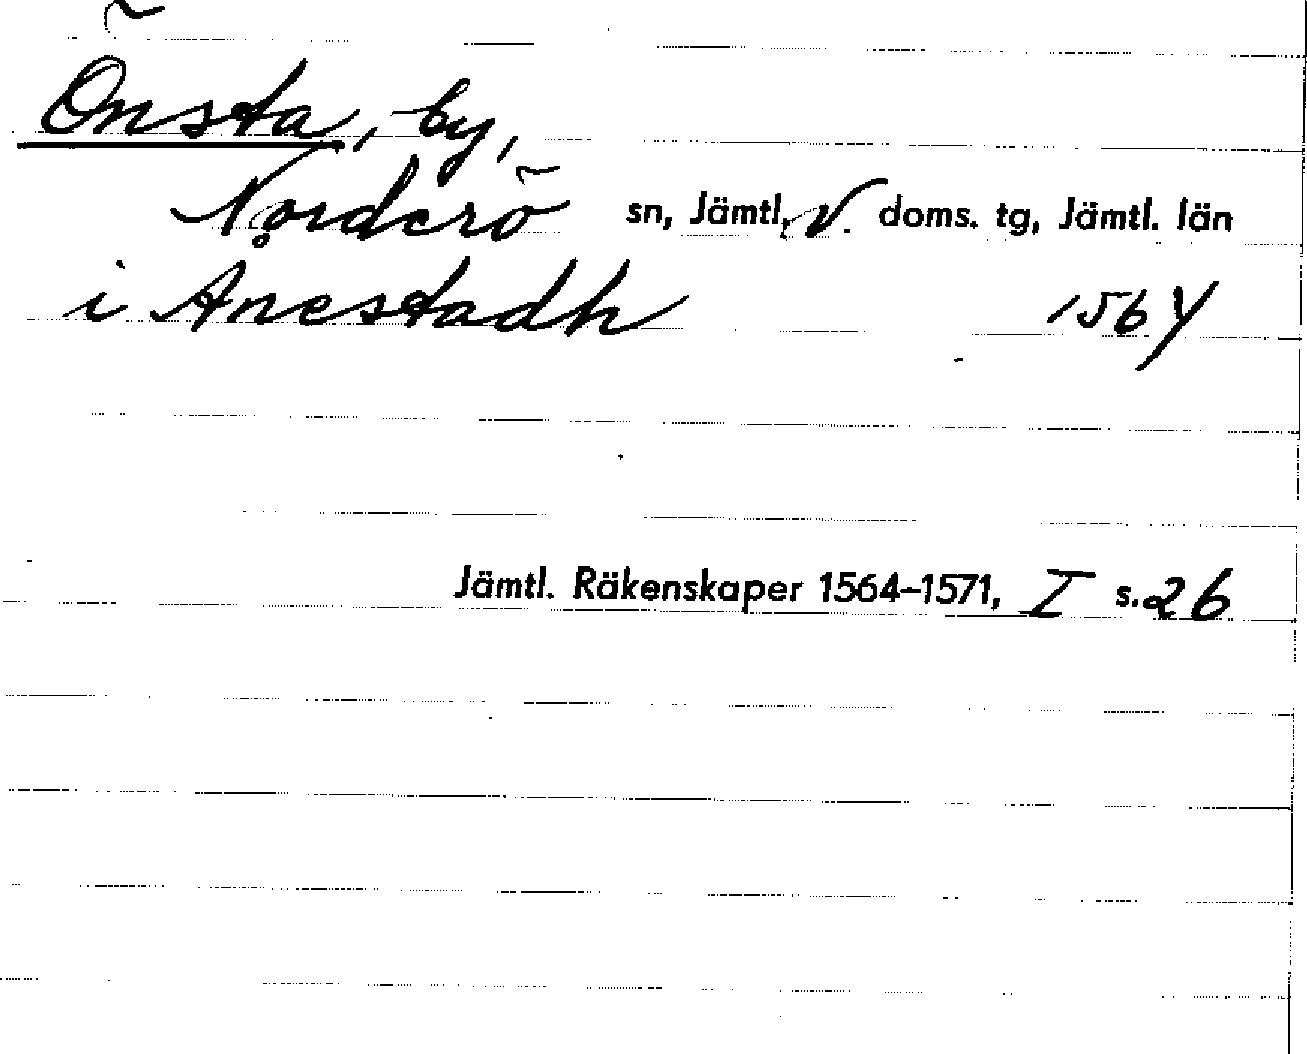 Önsta, by,
Norderö sn, Jämtl, V. doms. tg, Jämtl. län
i Anestadh 1564
Jämtl. Räkenskaper 1564–1571, I s. 26